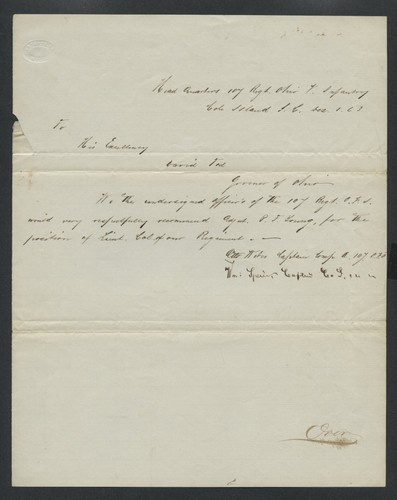 Head Quarters 107 Regt. Ohio V. Infantry
Cole Island S. C. Dec. 1. 63
To
His Excellency
David Tod
Governor of Ohio
We the undersigned officers of the 107 Regt. O.V.I.
would very respectfully recommend Capt. P. F. Young, for the
position of Lieut. Col of our Regiment
Otto Weber Captain Comp. A. 107 O.V.I.
Captain Co.
Over